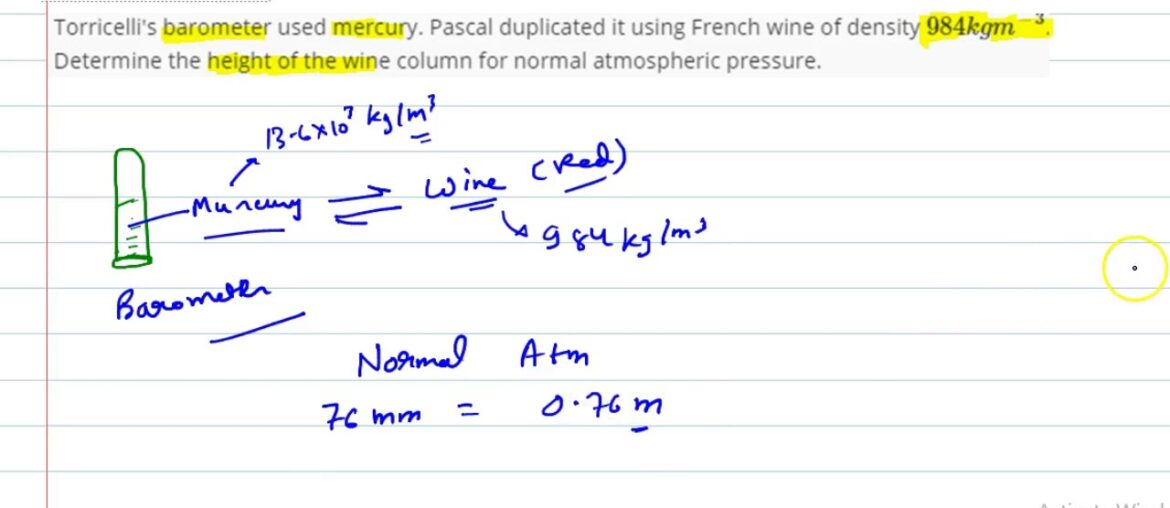 Torricelli's barometer used mercury. Pascal duplicated it using French wine of density 984kgm⁻³.
Determine the height of the wine column for normal atmospheric pressure.
13.6×10³ kg/m³
Mercury ⇌ Wine (Red)
984 kg/m³
Barometer
Normal Atm
76 mm = 0.76 m